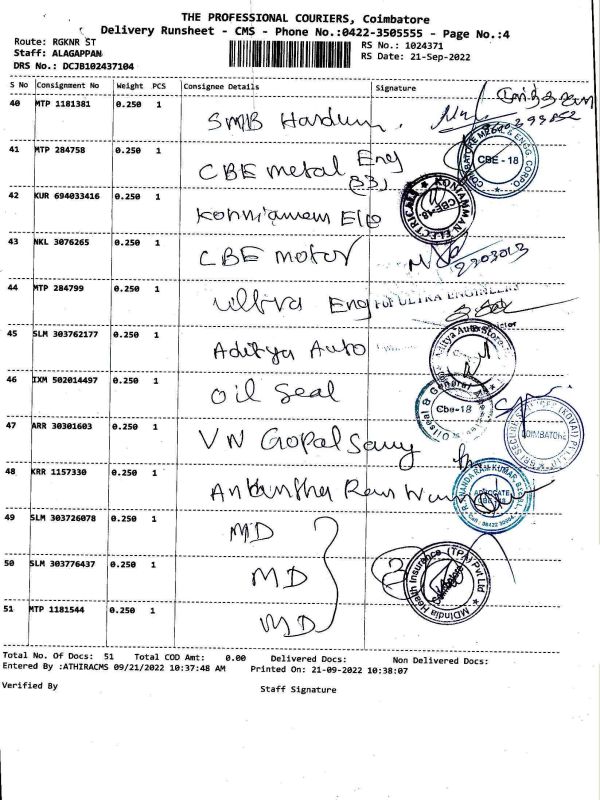 THE PROFESSIONAL COURIERS, Coimbatore
Delivery Runsheet - CMS - Phone No.:0422-3505555 - Page No.:4
Route: RGKNR ST
RS No.: 1024371
Staff: ALAGAPPAN
RS Date: 21-Sep-2022
DRS No.: DCJB102437104
S No Consignment No Weight PCS Consignee Details Signature
40 MTP 1181381 0.250 1 SMB Hardum.
41 MTP 284758 0.250 1 CBE metal Eng
COIMBATORE METAL & ENGG CORPO.
CBE - 18
42 KUR 694033416 0.250 1 Konniamem Ele
KONIAMMAN ELECTRICALS
CBE-18.
43 NKL 3076265 0.250 1 CBE motor
2203013
44 MTP 284799 0.250 1 Ultra Eng
For ULTRA ENGINEERS
45 SLM 303762177 0.250 1 Aditya Auto
Aditya Auto Stores
46 IXM 502014497 0.250 1 Oil Seal
Oilseal & General
Cbe-18
47 ARR 30301603 0.250 1 VN Gopal Samy
COIMBATORE
48 KRR 1157330 0.250 1
ADVOCATE
49 SLM 303726078 0.250 1 MD
50 SLM 303776437 0.250 1 MD
MDIndia Health Insurance (TPA) Pvt Ltd
51 MTP 1181544 0.250 1 MD
Total No. Of Docs: 51 Total COD Amt: 0.00 Delivered Docs: Non Delivered Docs:
Entered By :ATHIRACMS 09/21/2022 10:37:48 AM Printed On: 21-09-2022 10:38:07
Verified By Staff Signature